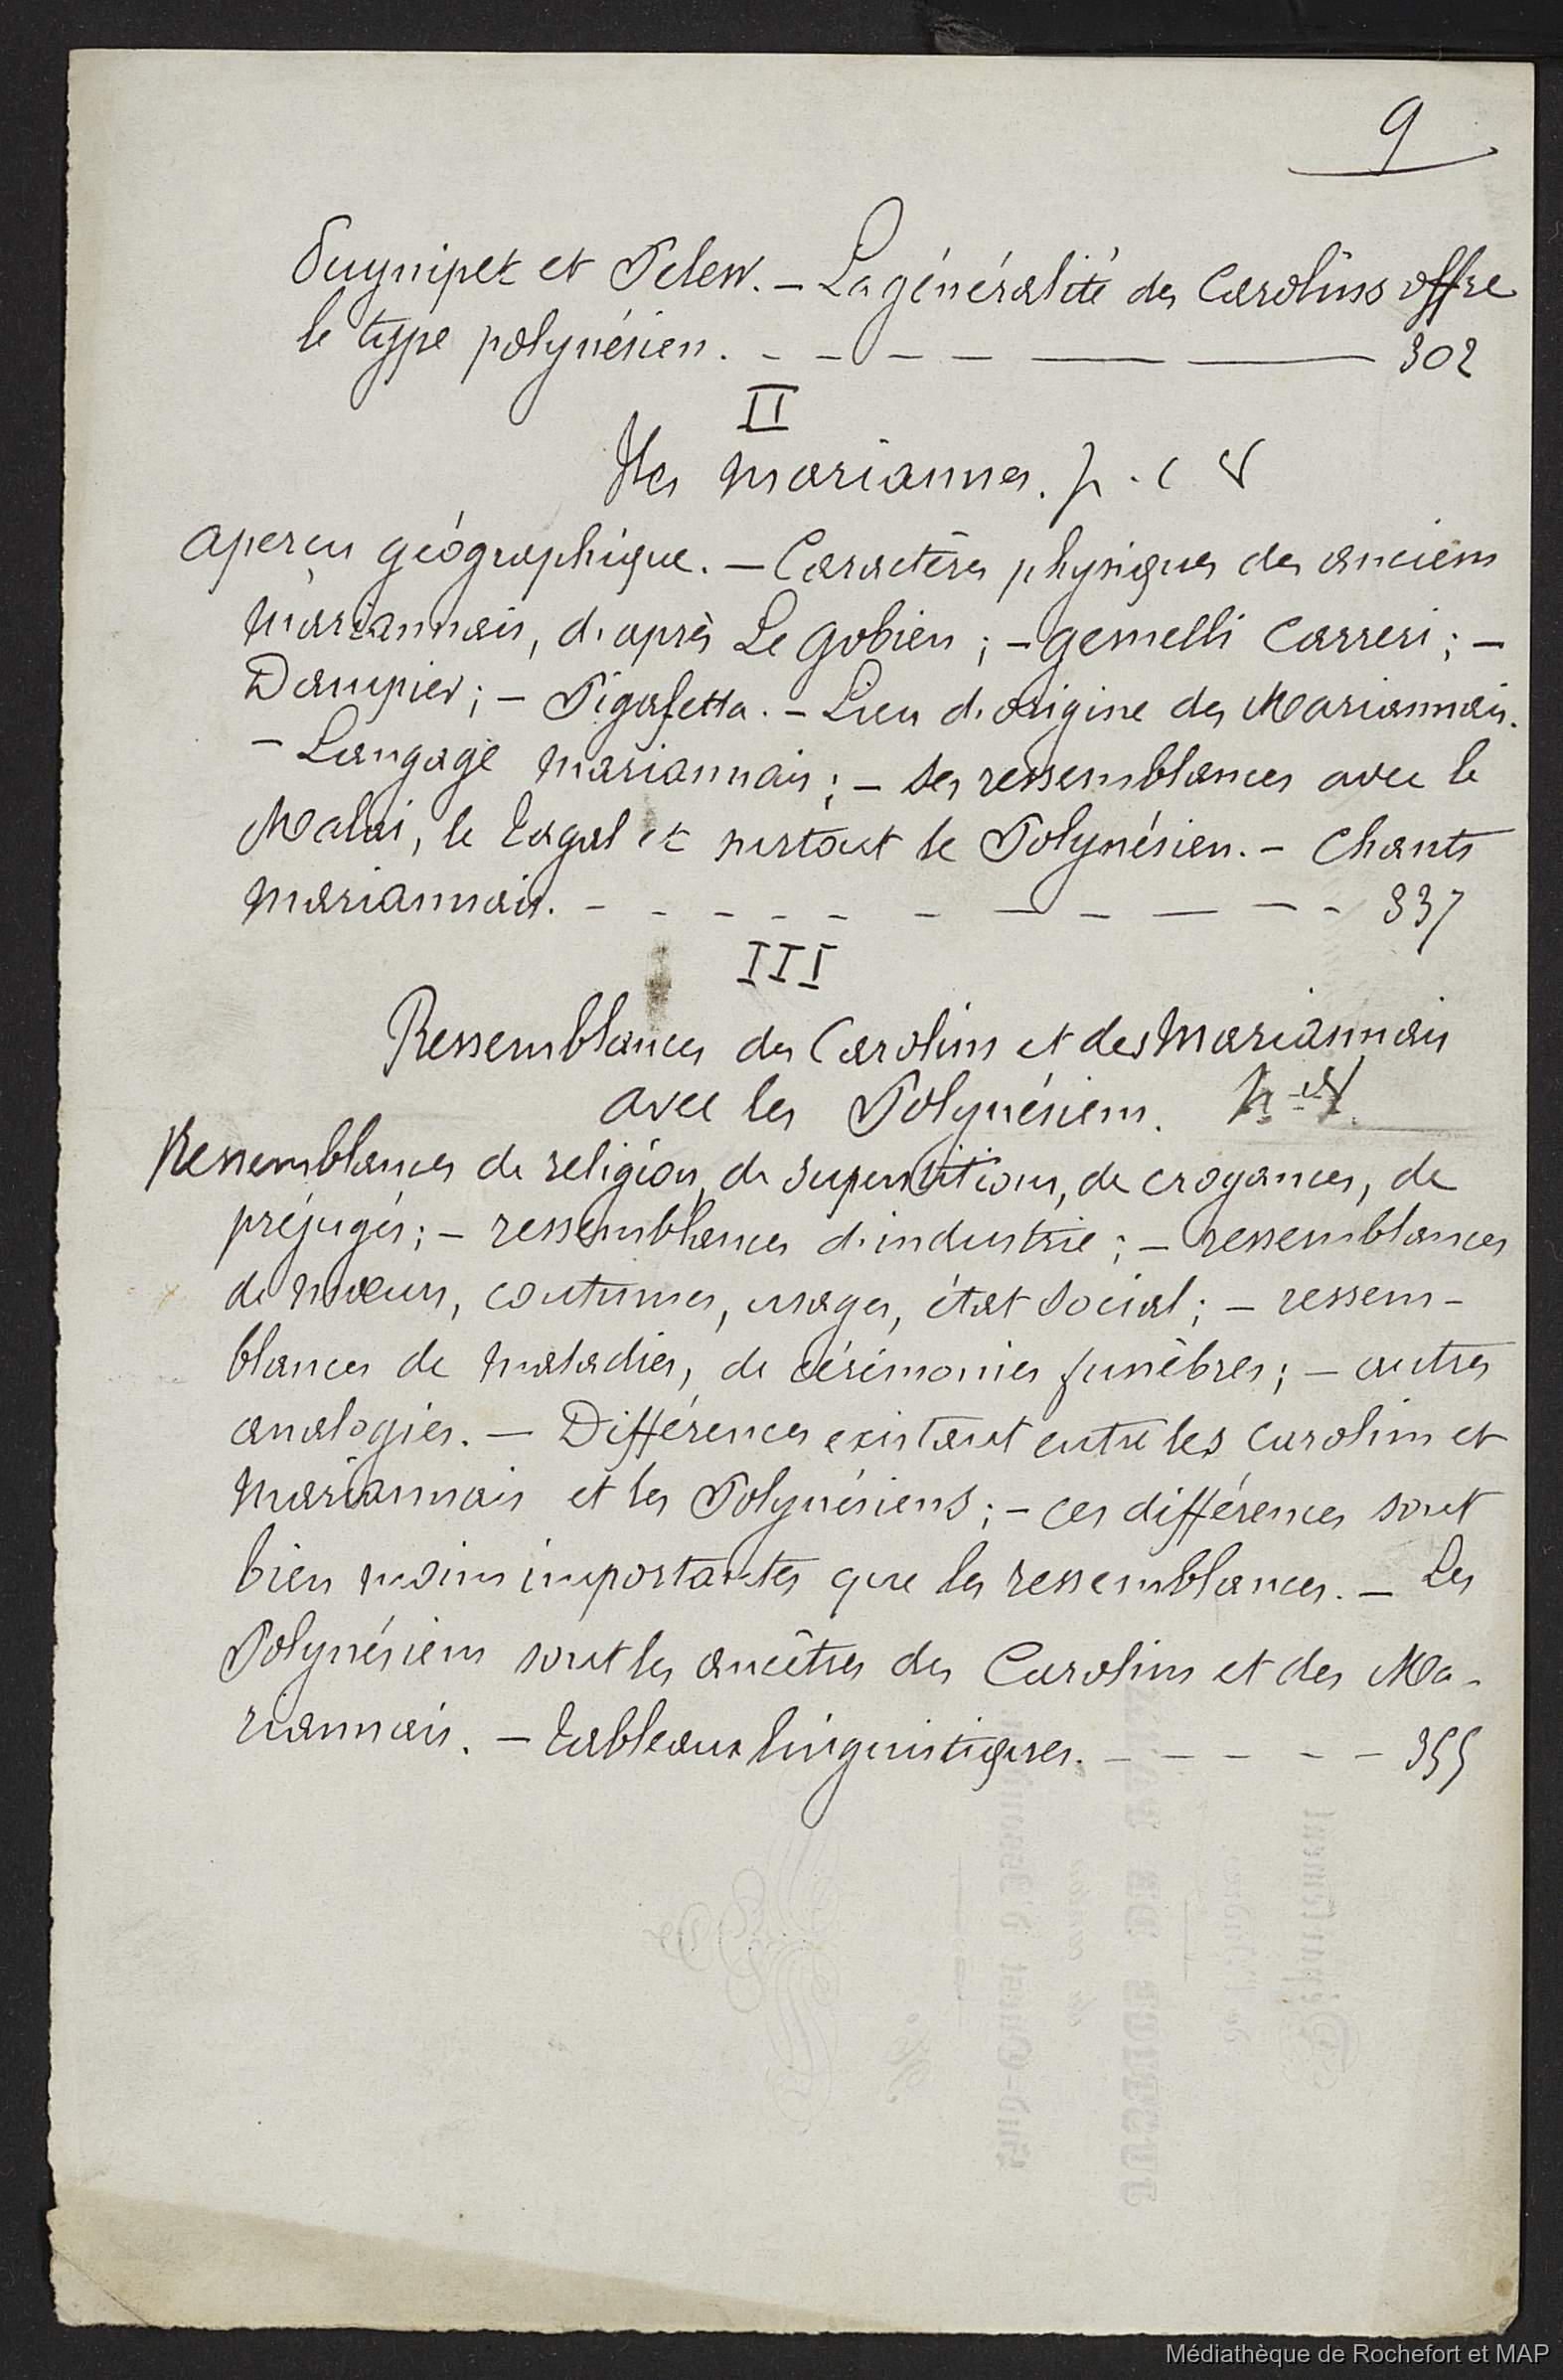 9
Puynipet et Pelew. – La généralité des Carolins offre
le type polynésien. - - - - — — 302
II
Iles Mariannes. p. c
Aperçu géographique. – Caractères physiques des anciens
Mariannais, d'après Le Gobien ; – Gemelli Carreri ; –
Dampier ; – Pigafetta. – Lieu d'origine des Mariannais.
– Langage mariannais ; – Ses ressemblances avec le
Malai, le Tagal et surtout le Polynésien. – Chants
mariannais. - - - - - - - - - - - 337
III
Ressemblances des Carolins et des Mariannais
avec les Polynésiens.
Ressemblances de religion, de superstitions, de croyances, de
préjugés ; – ressemblances d'industrie ; – ressemblances
de mœurs, coutumes, usages, état social ; – ressem-
blances de maladies, de cérémonies funèbres ; – autres
analogies. – Différences existant entre les Carolins et
Mariannais et les Polynésiens ; – ces différences sont
bien moins importantes que les ressemblances. – Les
Polynésiens sont les ancêtres des Carolins et des Ma-
riannais. – Tableaux linguistiques. - - - - - 355
Médiathèque de Rochefort et MAP